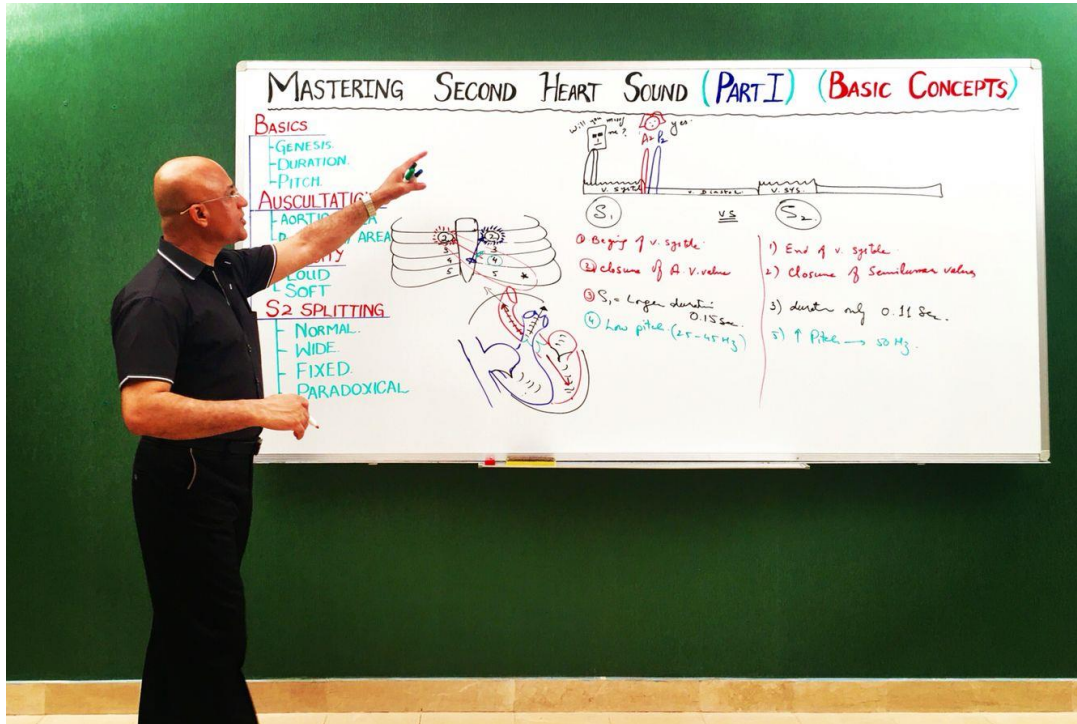 MASTERING SECOND HEART SOUND (PART I) (BASIC CONCEPTS)
BASICS
-GENESIS.
-DURATION.
-PITCH.
AUSCULTATIO
-AORTIC EA
AREA
ITY
LOUD
SOFT
S2 SPLITTING
- NORMAL.
- WIDE.
- FIXED.
- PARADOXICAL
2 2
3 3
4 4
5 5
Will you marry
me?
yes.
A2 P2
V. Systole V. Diastole V. SYS.
S1 VS S2
① Begining of v. systole
② closure of A.V. valve
③ S1 = Longer duration
0.15 sec.
④ Low pitch (25-45 Hz)
1) End of v. systole
2) Closure of Semilunar valves
3) duration only 0.11 Sec.
5) ↑ Pitch → 50 Hz.